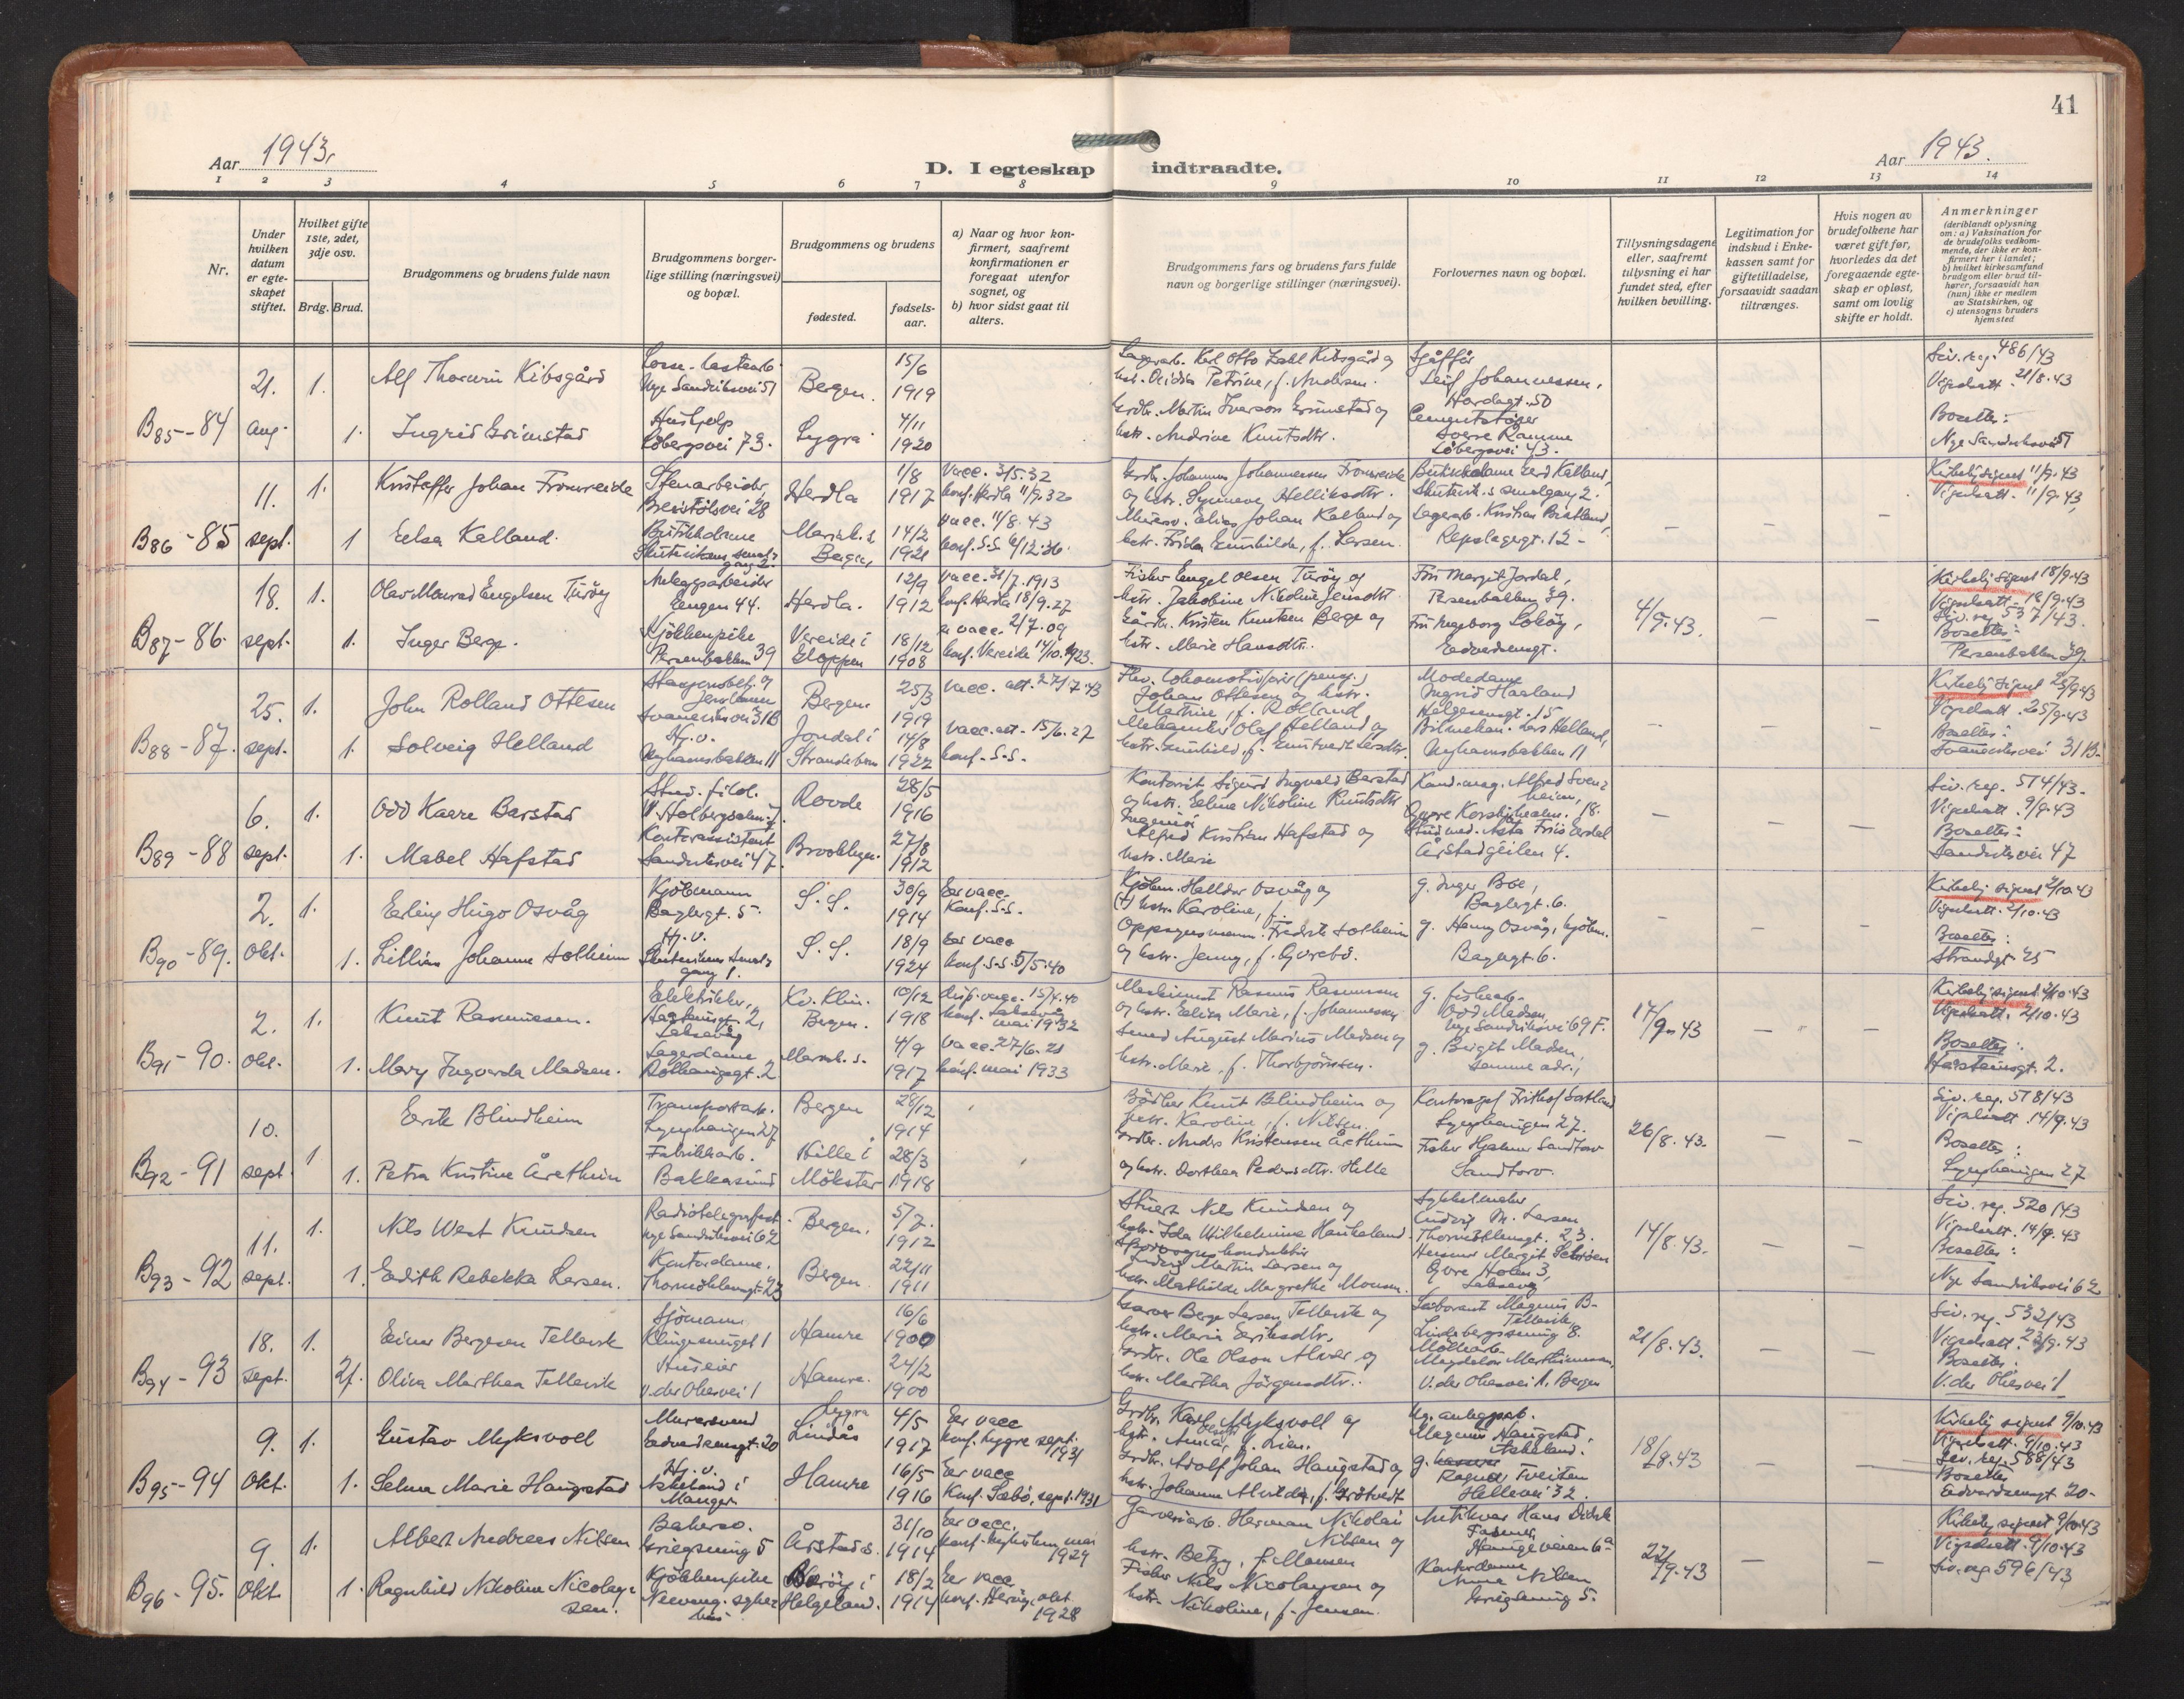 41
Aar 1943.
D. I egteskap indtraadte.
Aar 1943.
1 2 3 4 5 6 7 8 9 10 11 12 13 14
Nr.
Under hvilken datum er egte-skapet stiftet.
Hvilket gifte 1ste, 2det, 3dje osv.
Brdg. Brud.
Brudgommens og brudens fulde navn
Brudgommens borger-lige stilling (næringsvei) og bopæl.
Brudgommens og brudens
fødested.
fødsels-aar.
a) Naar og hvor kon-firmert, saafremt konfirmationen er foregaat utenfor sognet, og
b) hvor sidst gaat til alters.
Brudgommens fars og brudens fars fulde navn og borgerlige stillinger (næringsvei).
Forlovernes navn og bopæl.
Tillysningsdagene eller, saafremt tillysning ei har fundet sted, efter hvilken bevilling.
Legitimation for indskud i Enke-kassen samt for giftetilladelse, forsaavidt saadan tiltrænges.
Hvis nogen av brudefolkene har været gift før, hvorledes da det foregaaende egte-skap er opløst, samt om lovlig skifte er holdt.
Anmerkninger
(deriblandt oplysning om: a) Vaksination for de brudefolks vedkom-mende, der ikke er kon-firmert her i landet; b) hvilket kirkesamfund brudgom eller brud til-hører, forsaavidt han (hun) ikke er medlem av Statskirken, og c) utensogns bruders hjemsted
B85-84 21. aug. 1. Alf Thorwin Kibsgård
Nye Sandviksvei 51 Bergen. 15/6 1919
1. Ingrid Grimstad Hushjelp Løbergsvei 73. Lygra 4/11 1920
Lagerarb. Karl Otto Kibsgård og
hstr. Petrine, f. Andersen.
Grdbr. Martin Iverson Grimstad og
hstr. Andrine Knutsdtr.
Sjåffør Leif Johannessen,
Sverre Ramme Løbergsvei 43.
Siv. reg. 486/43
Vigselsatt. 21/8.43
Bosettes:
Nye Sandviksvei 51
B86-85 11. sept. 1. Kristoffer Johan Fromreide
Stenarbeider Herdla 1/8 1917 Vacc. 3/5.32
konf. Herdla 11/9.32
1 Elsa Kalland. Butikkdame
Bergen 14/2 1921 vacc. 11/8.43
Grdbr. Johannes Johannessen Fromreide
og hstr. Synneve Helliksdtr.
Murersv. Elias Johan Kalland og
hstr. Frida Gunhilde, f. Larsen.
Butikkdame Gerd Kalland,
Skuteviks smalgang 2.
Lagerarb. Kristian
Repslagergt. 12 -
Kirkelig signet 11/9.43
Vigselsatt. 11/9.43
B87-86. 18. sept. 1. Olav Monrad Engelsen Turøy
Anleggsarbeider Engen 44. Herdla. 12/9 1912 vacc. 31/7.1913
konf. Herdla 18/9.27
1. Inger Berge. Kjøkkenpike Persenbakken 39
Vereide i Gloppen 18/12 1908 vacc. 2/7.09
konf. Vereide 14/10.1923.
Fisker Engel Olsen Turøy og
hstr. Jakobine Nikoline Jensdtr.
Gårdbr. Kristen Knutsen Berge og
hstr. Marie Hansdtr.
Fru Margit Jordal, Persenbakken 39.
Fru Ingeborg
Edvardsensgt.
4/9.43.
Kirkelig signet 18/9.43
Vigselsatt. 18/9.43
Siv. reg. 537/43.
Bosettes:
Persenbakken 39
B88-87. 25. sept. 1. John Rolland Ottesen
Svaneviksvei 31B Bergen. 25/3 1919 vacc. att. 27/7.43
1. Solveig Helland Hj. v. Nyhavnsbakken 11
Jondal i Strandebarm 14/8 1922 vacc. att. 15/6.27
konf. S.S.
Johan Ottesen og hstr.
Martine, f. Rolland
Mekaniker Olaf Helland og
Modedame Ingrid Haaland
Helgesensgt. 15
Bilmekan. Lars Helland,
Nyhavnsbakken 11
Kirkelig signet 25/9.43
Vigselsatt. 25/9.43
Bosettes:
Svaneviksvei 31B.
B89-88 6. sept. 1. Odd Kaare Barstad
Stud. filol. Rovde 28/5 1916
1. Mabel Hafstad Kontorassistent Sandviksvei 47. Brooklyn. 27/8 1912
Kontorist Sigurd Ingvald Barstad
og hstr. Eline Nikoline Knutsdtr
Ingeniør Alfred Kristian Hafstad og
hstr. Marie
Kand. mag. Alfred Svenheim,
Øvre Korskirkealm. 18.
Stud. med. Asta Friis
Årstadgeilen 4.
Siv. reg. 514/43.
Vigselsatt. 9/9.43
Bosettes:
Sandviksvei 47
B90-89. 2. okt. 1. Erling Hugo Osvåg
Kjøbmann Baglergt. 5. S.S. 30/9 1914 Er vacc.
Konf. S.S.
1. Lillian Johanne Solheim Hj. v.
S.S. 18/9 1924 Er vacc
konf. S.S. 5/5.40
Kjøbm. Halldor Osvåg og
hstr. Karoline, f.
Oppsynsmann Fredrik Solheim
og hstr. Jenny, f. Gjerebø.
g. Inger Boe, Baglergt. 6.
g. Henny Osvåg, kjøbm.
Baglergt. 6.
Kirkelig signet 2/10.43
Vigselsatt. 2/10.43
Bosettes:
Strandgt. 25
B91-90. 2. okt. 1. Knut Rasmussen.
Elektriker, Laksevåg Kv. Klin. Bergen. 10/12 1918
konf. Laksevåg mai 1932
1. Mary Ingvarda Madsen.
Lagerdame 4/9 1917 Vacc. 27/6.21
konf. mai 1933
Maskinist Rasmus Rasmussen
og hstr. Elida Marie, f. Johannessen
Smed August Marius Madsen og
hstr. Marie, f. Thorbjørnsen.
Odd Madsen, Nye Sandviksvei 69 F.
g. Birgit Madsen,
samme adr.,
17/9.43
Kirkelig signet 2/10.43
Vigselsatt. 2/10.43
Bosettes:
Halsteinsgt. 2.
B92-91 10. sept. 1 Eirik Blindheim
Transportarb. Bergen 28/12 1914
1. Petra Kristine Åretheim
Fabrikkarb. Bakkasund Hille i Møkster 28/3 1918
Bødker Knut Blindheim og
hstr. Karoline, f. Nilsen.
Grdbr. Anders Kristensen Åretheim
og hstr. Dorthea Pedersdtr. Hille
Fisker Hjalmar Sandtorv
Sandtorv.
26/8.43.
Siv. reg. 518/43
Vigselsatt. 14/9.43
Bosettes:
B93-92 11. sept. 1. Nils West Knudsen
Radiotelegrafist Nye Sandviksvei 62 Bergen. 5/7. 1912
1. Edith Rebekka Larsen.
Kontordame. Thormøhlensgt. 23 Bergen 22/11 1911
Stuert Nils Knudsen og
hstr. Ida Wilhelmine Haukeland.
Ludvig Martin Larsen og
hstr. Mathilde Margrethe Monsen.
Ludvig M. Larsen Thormøhlensgt. 23.
Øvre Holen 3, Laksevåg
14/8.43.
Siv. reg. 520/43
Vigselsatt. 14/9.43
Bosettes:
Nye Sandviksvei 62
B94-93 18. sept. 1. Einar Bergesen Tellevik
Sjømann Klingesmuget 1 Hamre 16/6 1900
2f. Oliva Marthea Tellevik
Huseier V. der Ohesvei 1 Hamre. 24/2 1900
Garver Berge Larsen Tellevik og
hstr. Marie Eriksdtr.
Grdbr. Ole Olson Alver og
hstr. Martha Jørgensdtr.
Laborant Magnus B. Tellevik,
V. der Ohesvei 1. Bergen
21/8.43.
Siv. reg. 532/43
Bosettes:
V. der Ohesvei 1
B95-94 9. okt. 1. Gustav Myksvoll
Murersvend Edvardsensgt. 20 Lygra Lindås 4/5 1917 Er vacc
konf. Lygra sept. 1931
1. Selma Marie Haugstad
Hj. v. Askeland i Manger Hamre 16/5 1916 Er vacc
Konf. Sæbø, sept. 1931
Grdbr. Karl Myksvoll og
hstr. Anna, f. Lien.
Grdbr. Adolf Johan Haugstad og
hstr. Johanne Alvilde, f.
Magnus Haugstad, Askeland.
Ragna Tveiten
Hellevei 32.
18/9.43
Kirkelig signet 9/10.43
Vigselsatt. 9/10.43
Siv. reg. 588/43
Bosettes
Edvardsensgt 20.
B96-95. 9. okt. 1. Albert Andreas Nilsen
Bakersv. Griegsmug 5 Årstad s. 31/10 1914 Er vacc.
mai 1929
1. Ragnhild Nikoline Nicolaysen.
Kjøkkenpike Neeveng. sykehus Herøy i Helgeland. 18/2 1914 Er vacc
konf. Herøy, okt. 1928
Garveriarb. Herman Nikolai Nilsen og
hstr. Betzy, f. Monsen
Fisker Nils Nicolaysen og
hstr. Nikoline, f. Jensen.
Antikvar Hans Didrik Fasmer,
Kontordame Anna Nilsen
Griegsmug 5.
22/9.43
Kirkelig signet 9/10.43
Vigselsatt. 9/10.43
Siv. reg 596/43